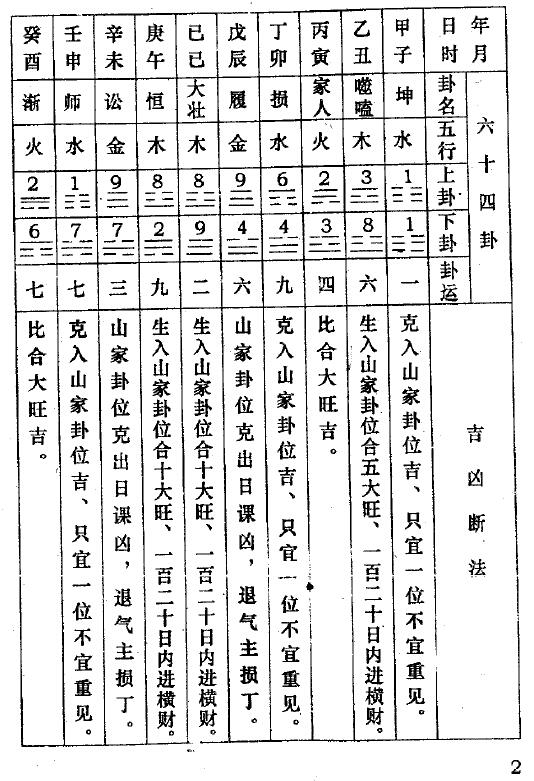 年月日时
六十四卦
卦名
五行
上卦
下卦
卦运
吉凶断法
甲子
坤
水
1
1
一
克入山家卦位吉、只宜一位不宜重见。
乙丑
噬嗑
木
3
8
六
生入山家卦位合五大旺、一百二十日内进横财。
丙寅
家人
火
2
3
四
比合大旺吉。
丁卯
损
水
6
4
九
克入山家卦位吉、只宜一位不宜重见。
戊辰
履
金
9
4
六
山家卦位克出日课凶，退气主损丁。
已已
大壮
木
8
9
二
生入山家卦位合十大旺、一百二十日内进横财。
庚午
恒
木
8
2
九
生入山家卦位合十大旺、一百二十日内进横财。
辛未
讼
金
9
7
三
山家卦位克出日课凶，退气主损丁。
壬申
师
水
1
7
七
克入山家卦位吉、只宜一位不宜重见。
癸酉
渐
火
2
6
七
比合大旺吉。
2